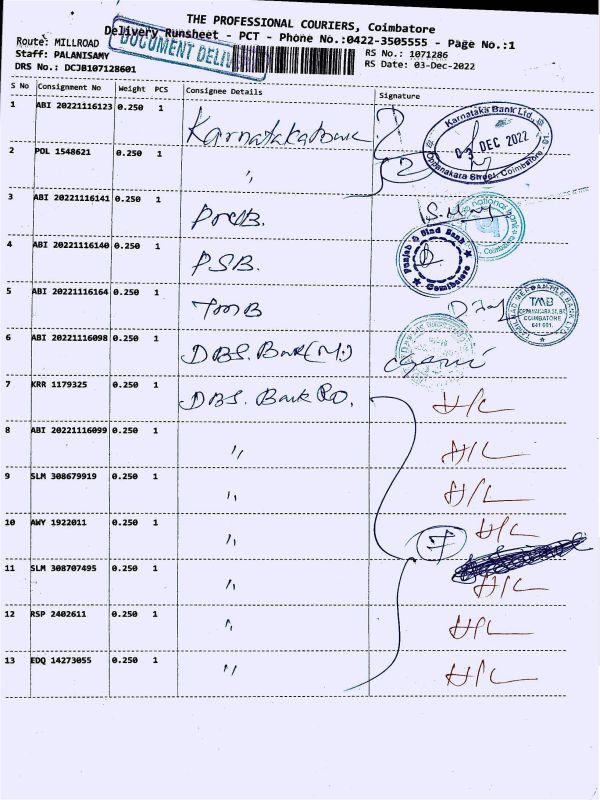 THE PROFESSIONAL COURIERS, Coimbatore
Delivery Runsheet - PCT - Phone No.:0422-3505555 - Page No.:1
DOCUMENT DELIV
Route: MILLROAD RS No.: 1071286
Staff: PALANISAMY RS Date: 03-Dec-2022
DRS No.: DCJB107128601
S No Consignment No Weight PCS Consignee Details Signature
1 ABI 20221116123 0.250 1 Karnataka Bank
Karnataka Bank Ltd.,
03 DEC 2022
Oppanakara Street, Coimbatore - 01.
2 POL 1548621 0.250 1 " 2
3 ABI 20221116141 0.250 1 PNB.
national bank
4 ABI 20221116140 0.250 1 PSB.
Punjab & Sind Bank
Coimbatore
5 ABI 20221116164 0.250 1 TMB
TAMILNAD MERCANTILE BANK LTD
TMB
OPPANAKARA ST, BR
COIMBATORE
641 001.
6 ABI 20221116098 0.250 1 DBS. Bank (M.)
7 KRR 1179325 0.250 1 DBS. Bank RO. H/L
8 ABI 20221116099 0.250 1 " H/L
9 SLM 308679919 0.250 1 " H/L
10 AWY 1922011 0.250 1 " 7 H/L
11 SLM 308707495 0.250 1 " H/L
12 RSP 2402611 0.250 1 " H/L
13 EDQ 14273055 0.250 1 " H/L